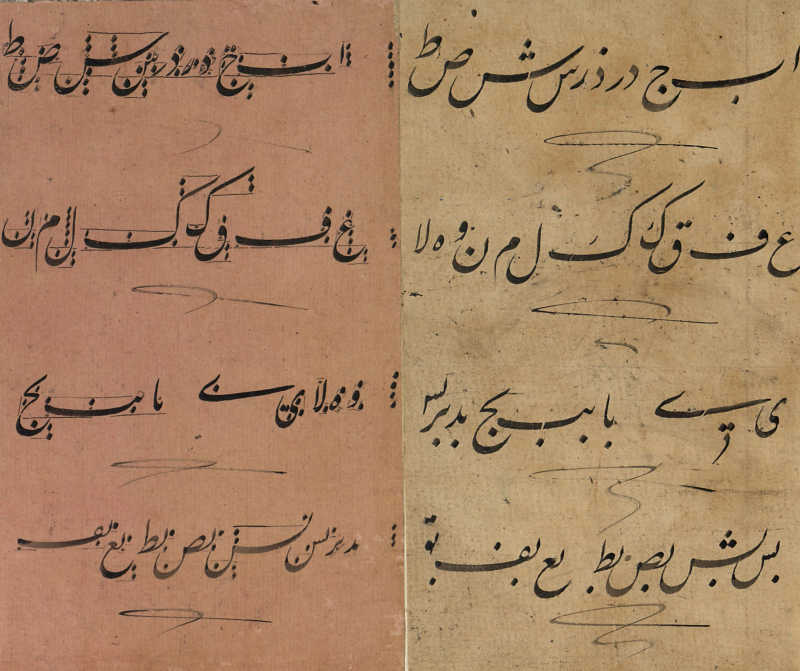 ا ب ج د ر ذ ر س ش ض ط
ع ف ق ک ک ل م ن و ه لا
ی ے با بب بج بد بر بس
بس بش بص بط بع بف بق
ا ب ج د ر د ر س س ص ط
ع ف ق ک ک ل م ن
و ه لا ی ے با بب بج
بد بر بس بس بص بط بع بف